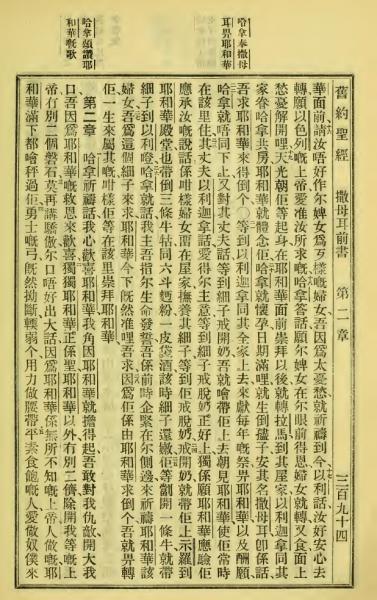 舊約聖經 撒母耳前書 第二章 三百九十四
哈拿奉撒母
耳畀耶和華
哈拿頌讚耶
和華嘅歌
華面前請汝唔好作尔婢女爲歹樣嘅婦女吾因爲太憂愁就祈禱到今以利話汝好安心去
轉願以色列嘅上帝應允汝所求嘅哈拿答話願尔婢女在尔眼前得恩婦女就轉又食面上
愁憂解開哩天光朝佢等起身在耶和華面前崇拜以後就轉拉馬到其屋家以利迦拿同其
家眷哈拿共房耶和華就體念佢哈拿就懷孕日期滿哩就生倒儘子安其名撒母耳卽係話
吾求耶和華來得倒个〇等到以利迦拿同其全家上去來獻每年嘅祭畀耶和華以及酬願
哈拿就唔同下上又對其丈夫話等到細子戒脫奶開奶吾就會帶佢上去朝見耶和華使佢常時
在該里住其丈夫以利迦拿話愛得尔主意等到細子戒脫奶正好上獨係願耶和華應驗佢
應承汝嘅說話係咁樣婦女留在屋家撫養其細子等到佢戒脫奶戒開奶就帶佢上示羅到
耶和華殿堂也帶倒三條牛牯同六斗麵粉一皮袋酒該時細子還嫩佢等劏開一條牛就帶
細子到以利唥哈拿就話我主吾指尔生命發誓吾係前時企緊在尔側邊來祈禱耶和華該
婦女吾爲這個細子來求耶和華今下旣然准哩吾求因爲佢係由耶和華求倒个吾就畀轉
佢一生來屬其嘅咁樣佢等在該里崇拜耶和華
第二章 哈拿祈禱話我心歡喜耶和華我角因耶和華就擔得起吾敢對我仇敵開大我
口吾因爲耶和華嘅救恩來歡喜獨獨耶和華正係聖耶和華以外有別二儕除開我等嘅上
帝有別二個磐石莫再講驕傲尔口唔好出大話因爲耶和華係無所不知嘅上帝人做嘅耶
和華滿下都噲秤過佢勇士嘅弓旣然拗斷輭弱个用力做腰帶平素食飽嘅人愛做奴僕來